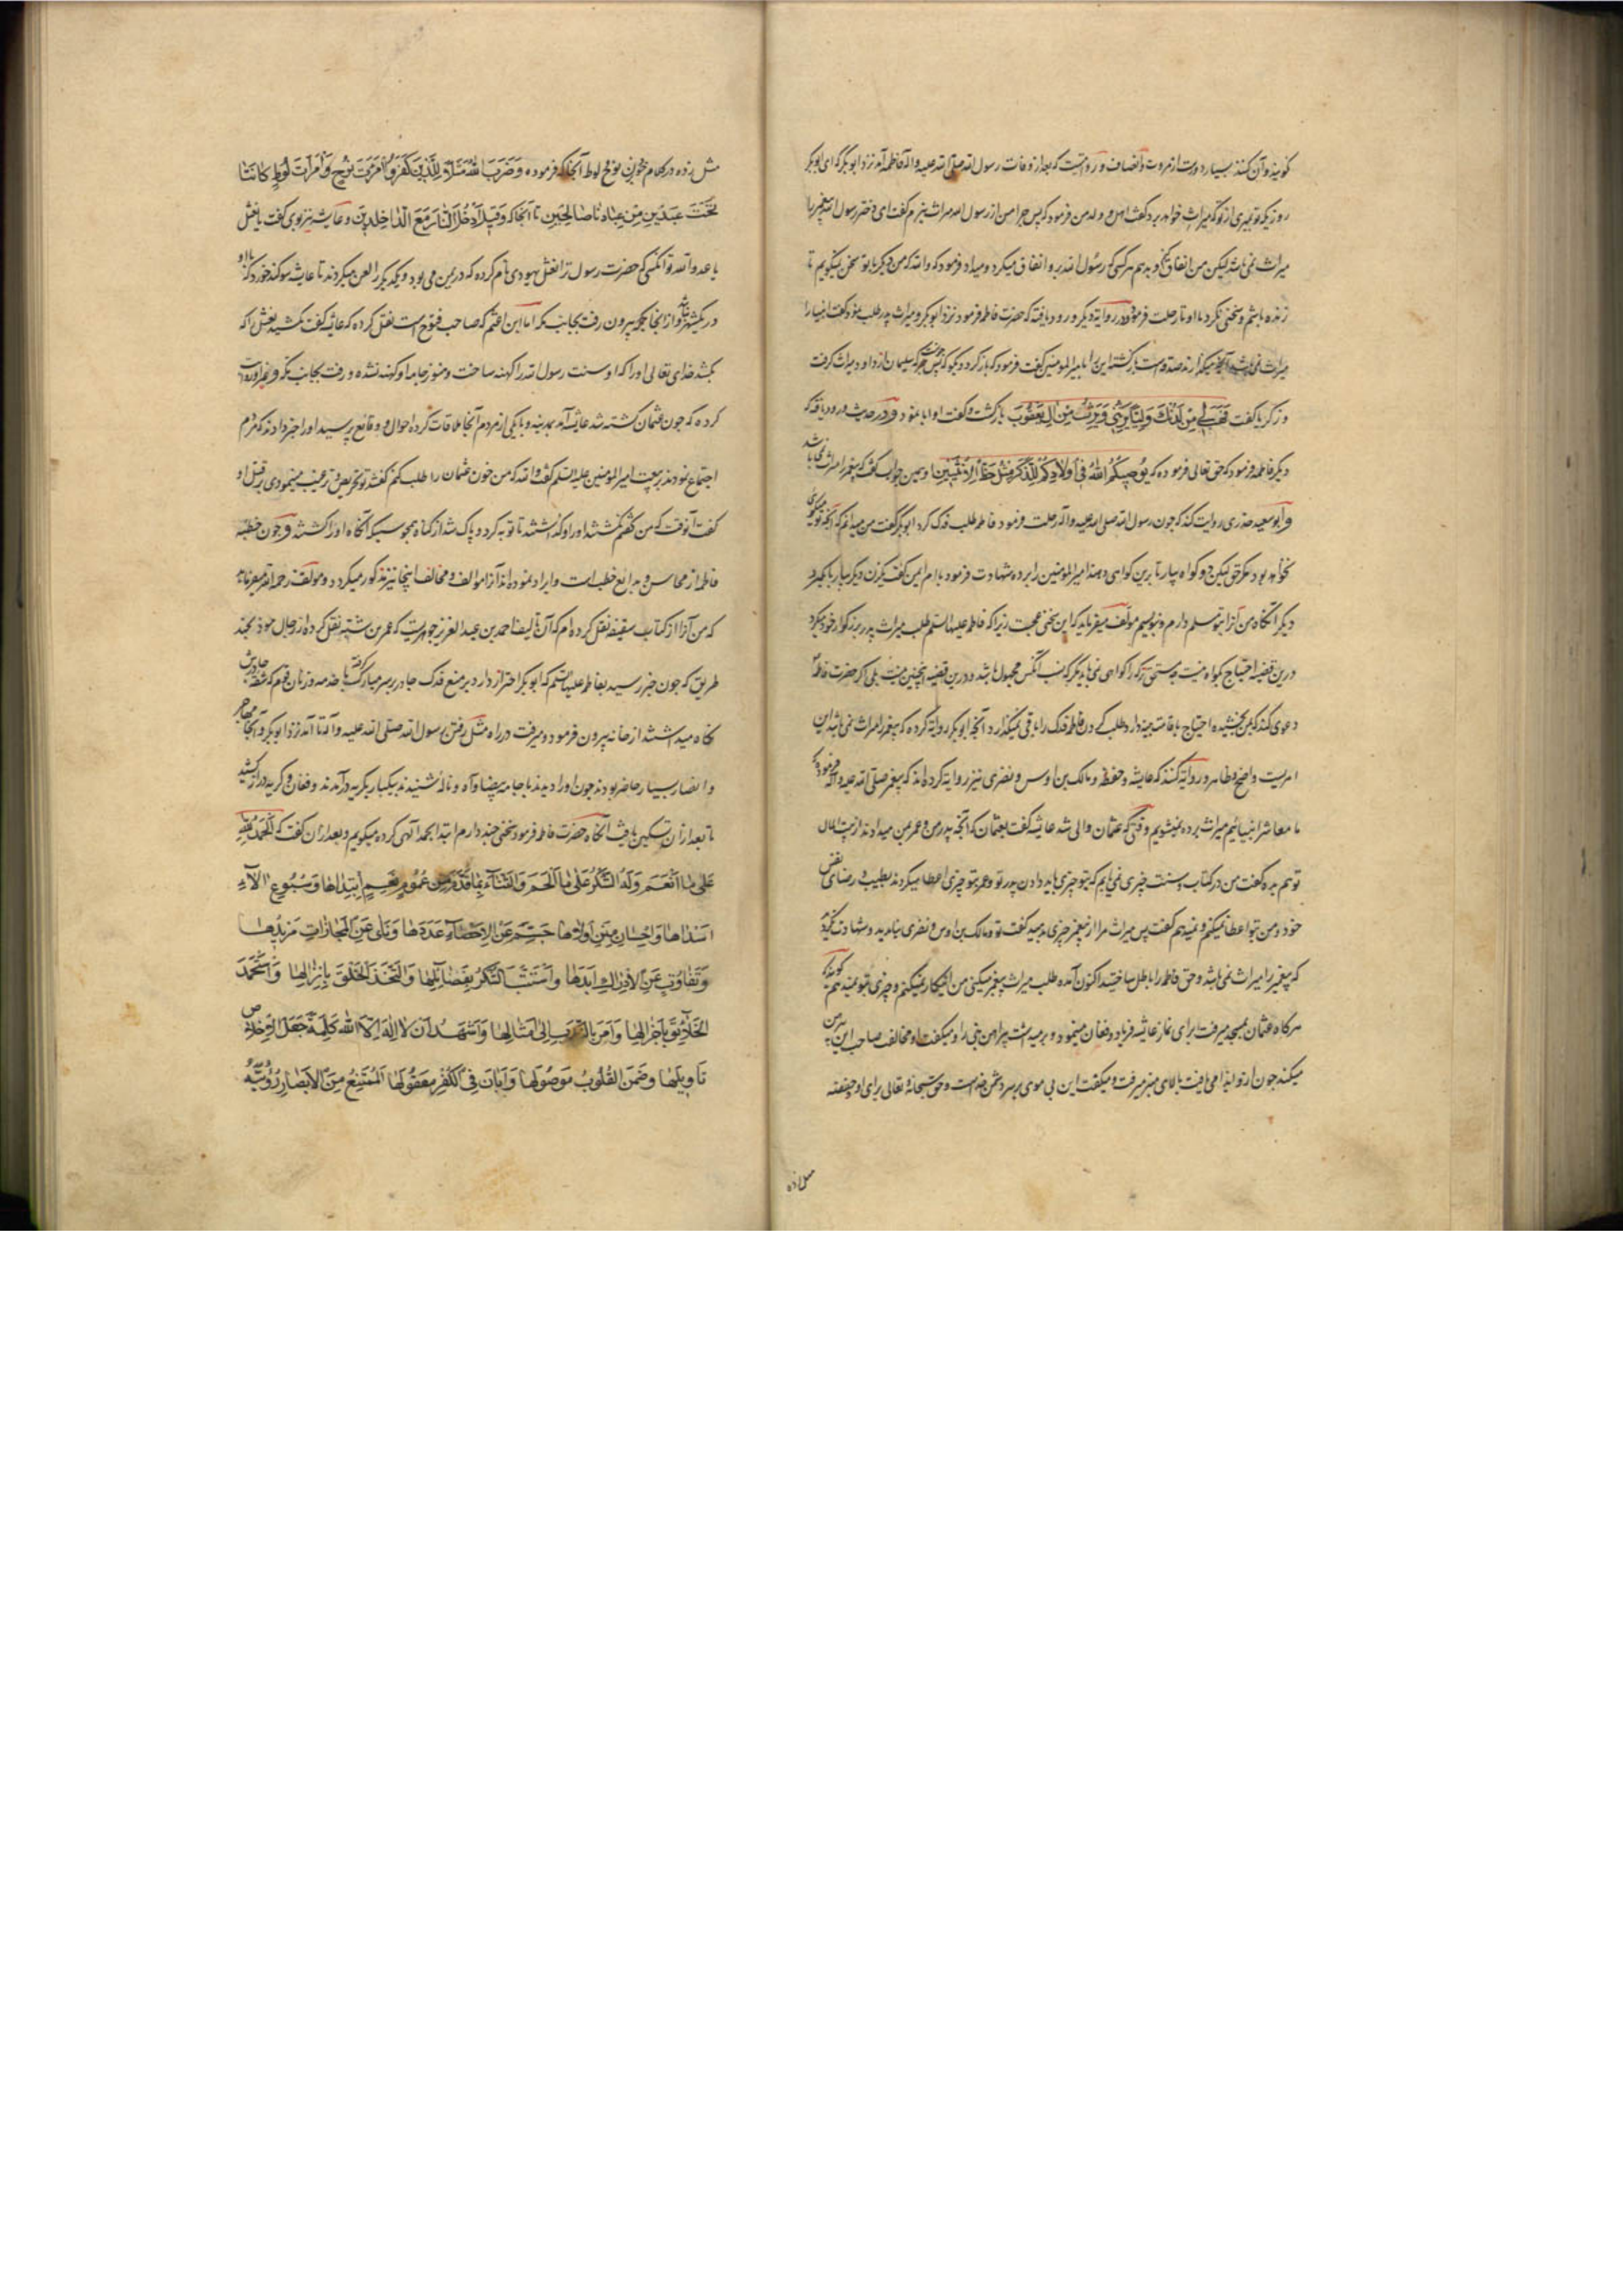 گویند و آن کنند بسیار دورست از مروت و انصاف و روایتست که بعد از وفات رسول الله صلی الله علیه و اله فاطمه آمد نزد ابوبکر که ای ابوبکر
روزیکه تو بمیری از تو که میراث خواهد برد گفت اهل و ولد من فرمود که پس چرا من از رسول الله میراث نبرم گفت ای دختر رسول الله پیغمبر را
میراث نمی باشد لیکن من انفاق کنم و بدهم هر کسی که رسول الله برو انفاق میکرد و میداد فرمود که والله که من دیگر با تو سخن نمیگویم تا
زنده باشم و سخنی نکرد با او تا رحلت فرمود و در روایة دیگر ورود یافته که حضرت فاطمه فرمود نزد ابوبکر و میراث پدر طلب نمود گفت انبیا را
میراث نمی باشد آنچه میگذارند صدقه است بازگشته این را با امیرالمومنین گفت فرمود که بازگرد و بگو که پس چونست که سلیمان از داود میراث گرفت
و زکریا گفت فَهَب لی مِن لَدُنکَ وَلِیّاً یَرِثُنی وَ یَرِثُ مِن الِ یَعقُوبَ بازگشت و گفت او ابا نمود و در حدیث ورود یافته که
دیگر فاطمه فرمود که حق تعالی فرموده که یُوصِیکُمُ اللهُ فی اَولادِکُم لِلذَّکَرِ مِثلُ حَظِّ الاُنثَیَینِ او همین جواب گفت که پیغمبر را میراث نمی باشد
و ابو سعید خدری روایت کند که چون رسول الله صلی الله علیه و اله رحلت فرمود فاطمه طلب فدک کرد ابوبکر گفت من میدانم که آنچه تو میگوئی
نخواهد بود مگر حق لیکن دو گواه بیار تا برین گواهی دهند امیرالمومنین را برده شهادت فرمود با ام ایمن گفت یکزن دیگر بیار یا یکمرد
دیگر آنگاه من آنرا بتو مسلم دارم و بنویسم مولف میفرماید که این سخنی عجبست زیرا که فاطمه علیها السلم طلب میراث پدر بزرگوار خود میکرد
درین قضیه احتیاج بگواه نیست چه مستحق ترکه را گواهی نمی باید مگر که نسب آنکس مجهول باشد و درین قضیه اینچنین نیست بلی اگر حضرت فاطمه
دعوی کند که بمن بخشیده احتیاج باقامت بینه دارد
امریست واضح و ظاهر و روایة کنند که عایشه و حفظه و مالک بن اوس و نضری نیز روایة کرده اند که پیغمبر صلی الله علیه و اله فرموده که
ما معاشر انبیائیم میراث برده نمیشویم و وقتی که عثمان والی شد عایشه گفت بعثمان که آنچه پدر من و عمر بمن میدادند از بیت المال
تو هم بده گفت من در کتاب و سنت چیزی نمی یابم که بتو چیزی باید دادن پدر تو و عمر بتو چیزی اعطا میکردند بطیب و رضای نفس
خود و من بتو اعطا نمیکنم و نمیدهم گفت پس میراث مرا از پیغمبر چیزی بدهید گفت تو و مالک بن اوس و نضری بیامدید و شهادت کردید
که پیغمبر را میراث نمی باشد و حق فاطمه را باطل ساختید اکنون آمده طلب میراث پیغمبر میکنی من اینکار نمیکنم و چیزی بتو نمیدهم گویند که
هر گاه عثمان بمسجد میرفت برای نماز عایشه فریاد و فغان مینمود و بر میداشت پیراهن نبی را و میگفت او مخالف صاحب این پیرهن
میکند چون از و ایذا می یافت بالای منبر میرفت و میگفت این بی موی بر سر دشمن خداست و حق سبحانه تعالی برای او و حفصه
مثل زده
مثل زده در کلام خود بزن نوح و لوط آنجا که فرموده وَ ضَرَبَ اللهُ مَثَلاً لِلَّذینَ کَفَرُوا امرَاَتَ نُوحٍ وَ امرَاَتَ لُوطٍ کانَتا
تَحتَ عَبدَینِ مِن عِبادِنا صالِحَینِ تا آنجا که وَ قیلَ ادخُلَا النّارَ مَعَ الدّاخِلینَ و عایشه نیز بوی گفت یا نعثل
یا عدو الله تو آنکسی که حضرت رسول ترا نعثل یهودی نام کرده که در یمن می بود و یکدیگر را لعن میکردند تا عایشه سوگند خورد که با او
در یکشهر نباشد و از آنجا بیرون رفت بجانب مکه اما ابن اعثم که صاحب فتوح است نقل کرده که عایشه گفت بکشید نعثل را که
بکشد خدای تعالی او را که او سنت رسول الله را کهنه ساخت و هنوز جامه او کهنه نشده و رفت بجانب مکه و غیر او روایت
کرده که چون عثمان کشته شد عایشه آمد بمدینه و با یکی از مردم آنجا ملاقات کرده احوال و وقایع پرسید او را خبر دادند که مردم
اجتماع نمودند بر بیعت امیرالمومنین علیه السلم گفت والله که من خون عثمان را طلب کنم گفت تو تحریص و ترغیب مینمودی بر قتل او
گفت آنوقت که من گفتم نکشتند او را و گذاشتند تا توبه کرد و پاک شد از گناه همچو سبیکه آنگاه او را کشتند و چون خطبه
فاطمه از محاسن و بدایع خطب است و ایراد نموده اند آنرا موالف و مخالف اینجا نیز مذکور میگردد و مولف رحمه الله میفرماید
که من آنرا از کتاب سقیفه نقل کرده ام که آن تالیف احمد بن عبد العزیز جوهریست که عمر بن شبه نقل کرده از رجال خود بچند
طریق که چون خبر رسید بفاطمه علیها السلم که ابوبکر احتراز دارد بر منع فدک چادر بر سر مبارک گرفته با خدمه و زنان قوم که
نگاه میداشتند از خانه بیرون فرمود و میرفت در راه مثل رفتن رسول الله صلی الله علیه و آله تا آمد نزد ابوبکر و آنجا مهاجر
و انصار بسیار حاضر بودند چون او را دیدند و آه و ناله شنیدند بیکبار بگریه درآمدند و فغان و گریه درکشید
تا بعد از آن تسکین یافت آنگاه حضرت فاطمه فرمود سخنی چند دارم ابتدا بحمد الهی کرده میگویم و بعد از آن گفت که اَلحَمدُ لِلّهِ
عَلی ما اَنعَمَ وَ لَهُ الشُّکرُ عَلی ما اَلهَمَ وَ الثَّناءُ بِما قَدَّمَ مِن عُمُومِ نِعَمٍ اِبتَدَاَها وَ سُبُوغِ الآءِ
اَسداها وَ اِحسانِ مِنَنٍ اَولاها جَمَّ عَنِ الاِحصاءِ عَدَدُها وَ نَأی عَنِ المُجازاتِ مَزیدُها
وَ تَفاوَتَ عَنِ الاِدراکِ اَبَدُها وَ استَتَبَّ الشُّکرَ بِفَضائِلِها وَ الخَلقَ بِاِنزالِها وَ استَحمَدَ
الخَلائِقَ بِاِجزالِها وَ اَمَرَ بِالنَّدبِ اِلی اَمثالِها وَ اَشهَدُ اَن لا اِلهَ اِلَّا الله کَلِمَةٌ جَعَلَ الاِخلاصَ
تَأویلَها وَ ضَمَنَ القُلُوبَ مَوصُولَها وَ اَبانَ فِی الفِکرِ مَعقُولَها اَلمُمتَنِعُ مِنَ الاَبصارِ رُؤیَتُهُ